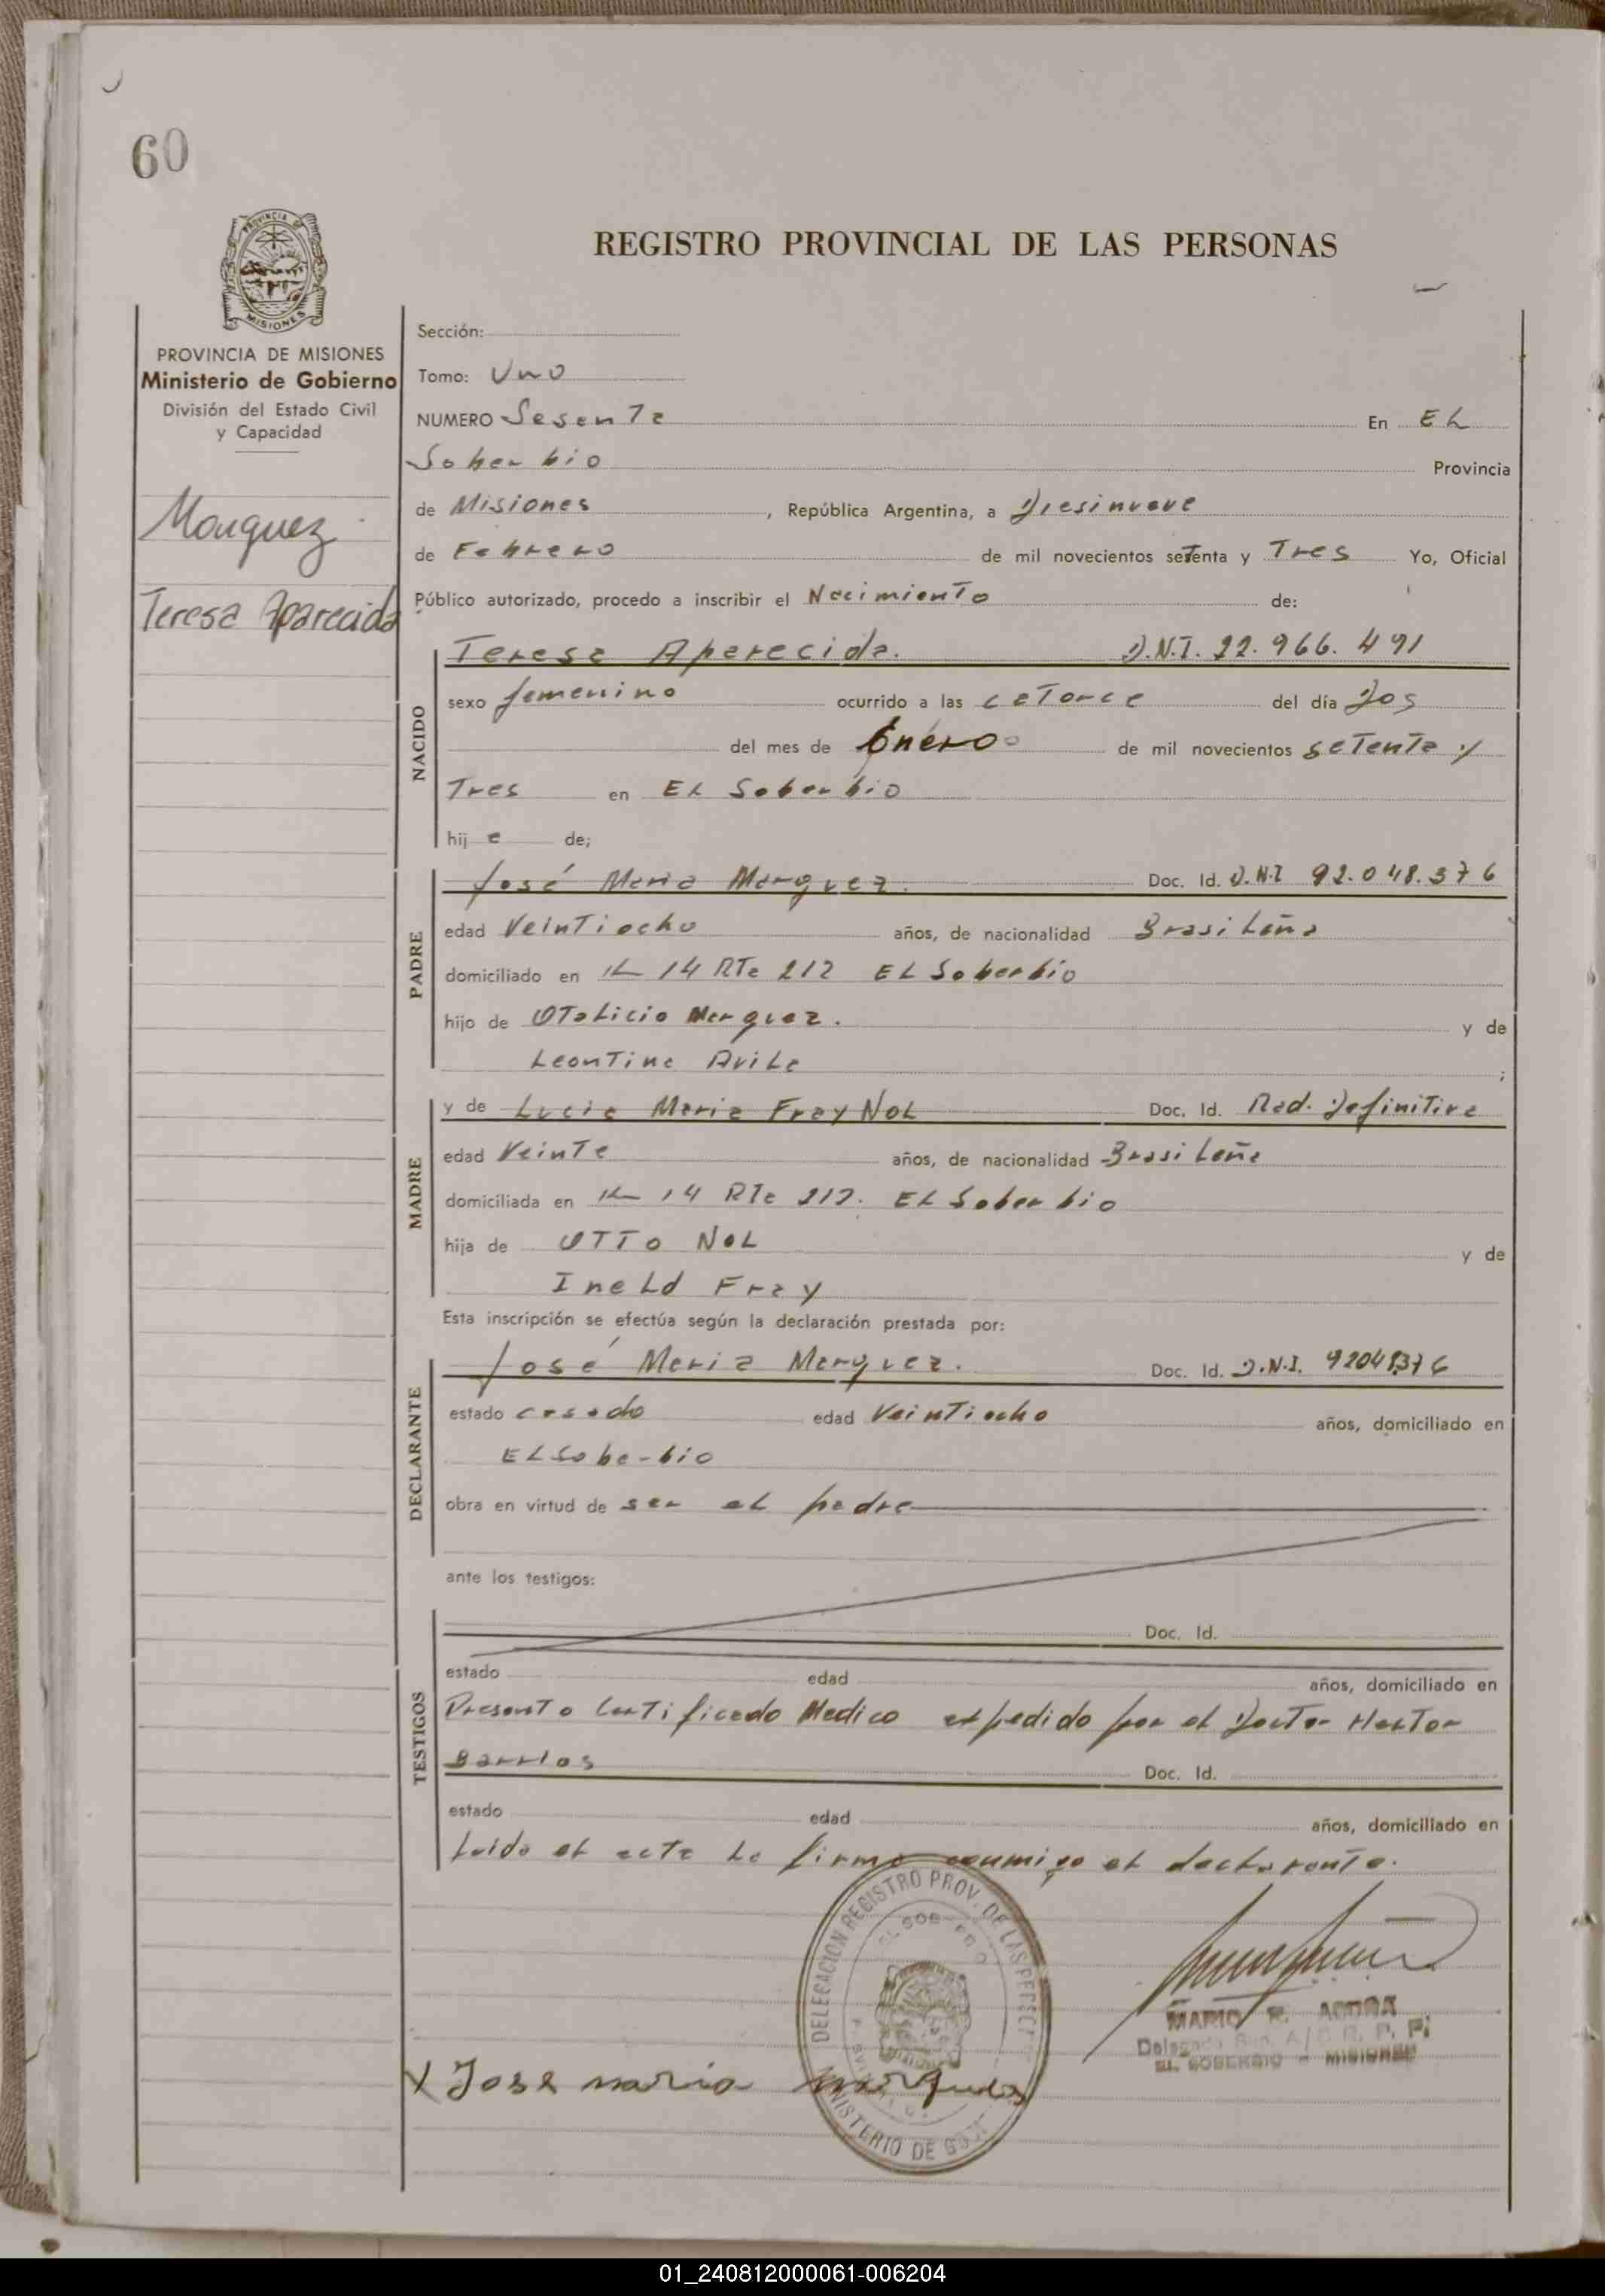 60
REGISTRO PROVINCIAL DE LAS PERSONAS
PROVINCIA DE MISIONES
Ministerio de Gobierno
División del Estado Civil
y Capacidad
Marquez
Teresa Aparecida
Sección:
Tomo: Uno
NUMERO Sesenta En EL
Soberbio Provincia
de Misiones, República Argentina, a Diesinueve
de Febrero de mil novecientos setenta y Tres Yo, Oficial
Público autorizado, procedo a inscribir el Nacimiento de:
NACIDO
Teresa Aparecida. D.N.I. 22.966.491
sexo femenino ocurrido a las catorce del día Dos
del mes de Enero de mil novecientos setenta y
Tres en EL Soberbio
hija de;
PADRE
José Maria Marquez. Doc. Id. D.N.I 92.048.376
edad Veintiocho años, de nacionalidad Brasileña
domiciliado en K 14 RTa 212 EL Soberbio
hijo de OTalicio Marquez. y de
Leontina Avila ;
MADRE
y de Lucia Maria Fray NoL Doc. Id. Rad. Definitiva
edad Veinte años, de nacionalidad Brasileña
domiciliada en K 14 RTa 212. EL Soberbio
hija de OTTo NoL y de
IneLd Fray
Esta inscripción se efectúa según la declaración prestada por:
DECLARANTE
José Maria Marquez. Doc. Id. D.N.I. 92048376
estado casado edad Veintiocho años, domiciliado en
EL Soberbio
obra en virtud de ser el padre
ante los testigos:
TESTIGOS
Doc. Id.
estado edad años, domiciliado en
Presento Certificado Medico expedido por el Doctor Hector
Barrios Doc. Id.
estado edad años, domiciliado en
Leido el acta la firma conmigo el declarante.
DELEGACION REGISTRO PROV. DE LAS
MINISTERIO DE
MARIO R.
EL SOBERBIO - MISIONES
X Jose maria marques
01_240812000061-006204